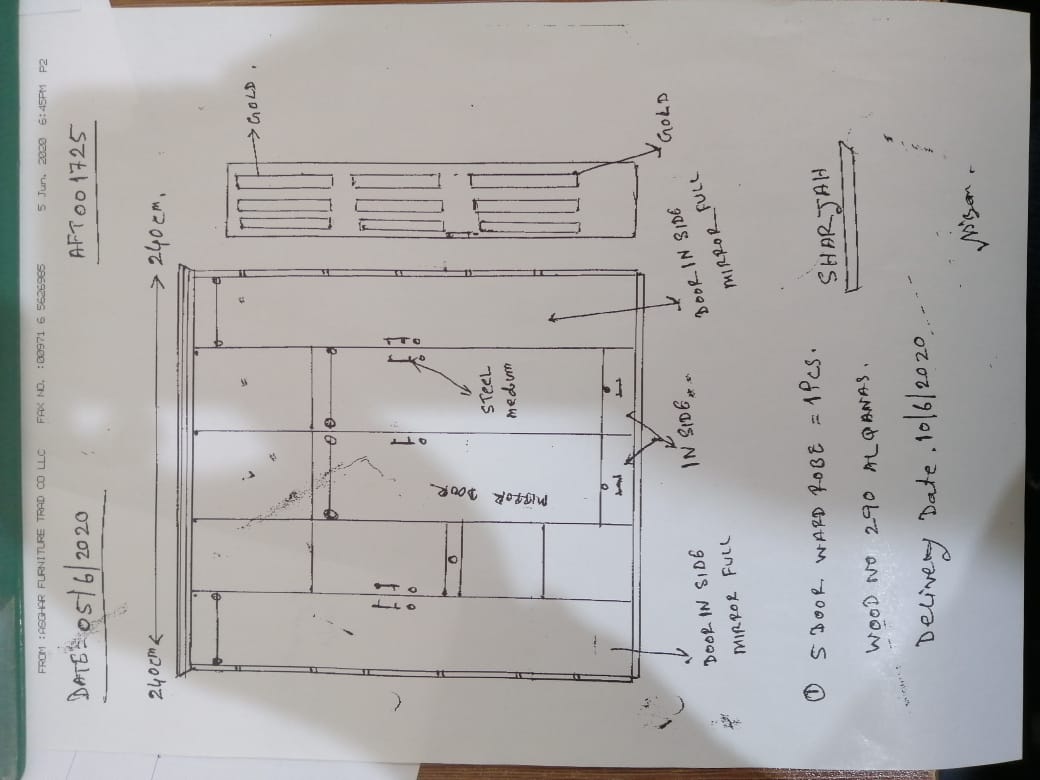 FROM :ASGHAR FURNITURE TRAD CO LLC FAX NO. :00971 6 5626985 5 Jun. 2020 6:45PM P2
DATE= 05/6/2020 AFT001725
240cm 240cm.
GOLD.
MIRROR DOOR
STEEL
medum
GOLD
DOOR IN SIDE
MIRROR FULL
IN SIDE
DOOR IN SIDE
MIRROR FULL
① 5 DOOR WARD ROBE = 1 PCS.
SHARJAH
WOOD NO 290 ALQANAS.
Delivery Date. 10/6/2020